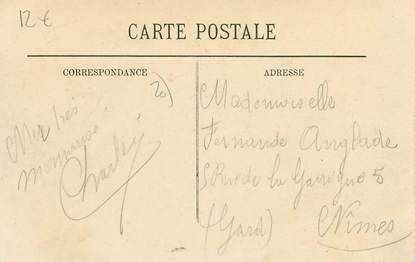 12 €
CARTE POSTALE
CORRESPONDANCE
ADRESSE
20)
Charley
Mademoiselle
Fernande Anglade
5 Rue de la Garrigue 5
(Gard) Nîmes